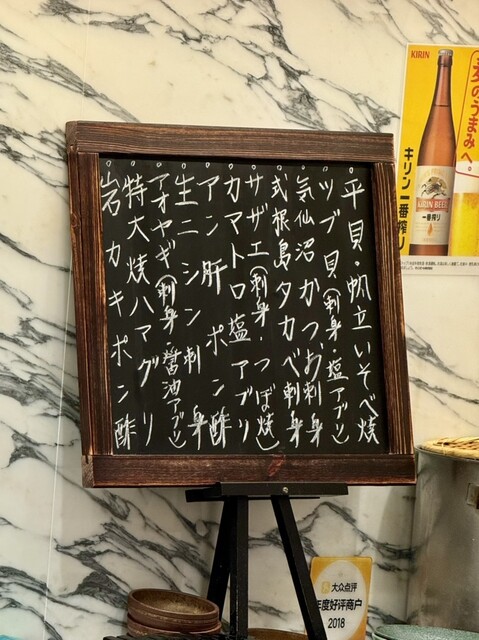 平貝・帆立いそべ焼
ツブ貝(刺身・塩アブリ)
気仙沼かつお刺身
式根島タカベ刺身
サザエ(刺身・つぼ焼)
カマトロ塩アブリ
アン肝ポン酢
生ニシン刺身
アオヤギ(刺身・醤油アブリ)
特大焼ハマグリ
岩カキポン酢
KIRIN
麦のうまみへ。
キリン一番搾り
KIRIN BEER
一番搾り
大众点评
年度好评商户
2018